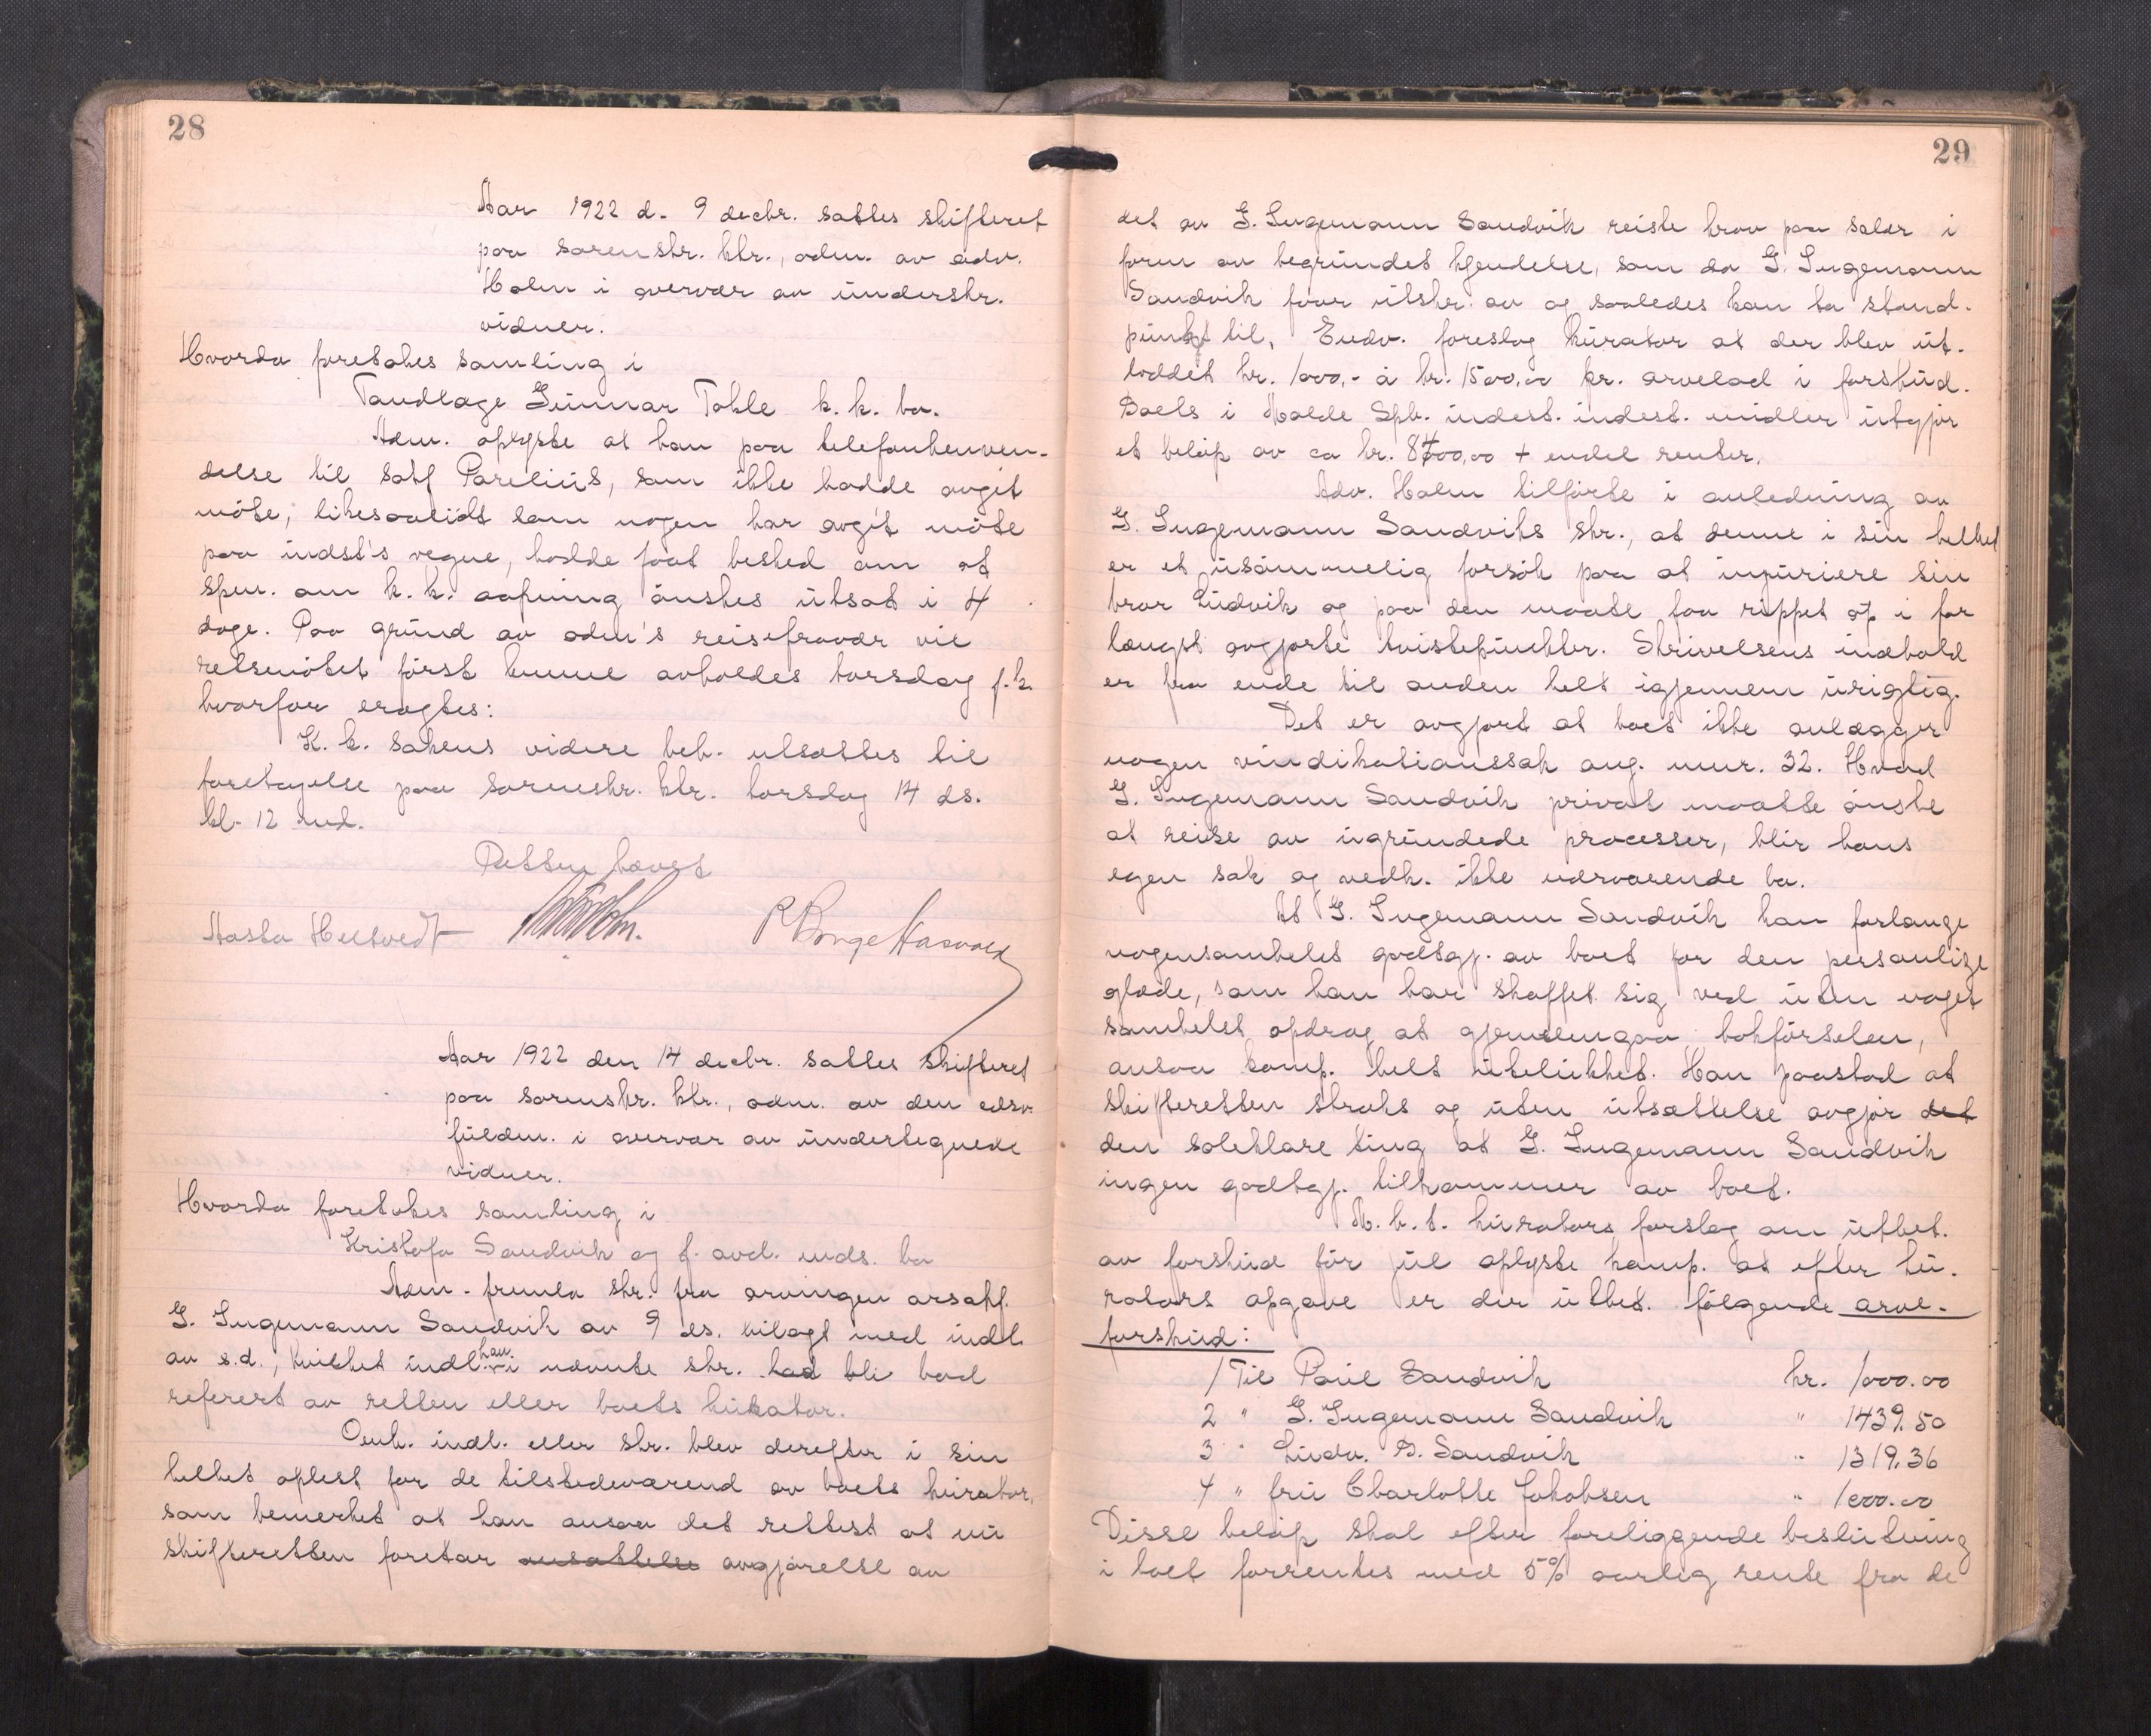 28
Aar 1922 d. 9 decbr. sattes skifteret
paa sorenskr. ktr., adm. av adv.
Holm i overvær av underskr.
vidner.
Hvorda foretokes samling i
Tandlæge Gunnar Tokle k. k. bo.
Adm. oplyste at han paa telefonhenven-
delse til sakf Parelius, som ikke hadde avgit
møte, likesaalidt som nogen har avgit møte
paa indst's vegne, hadde faat besked om at
spm. om k. k. aapning ønskes utsat i 4
dage. Paa grund av adm's reisefravær vil
retsmøtet først kunne avholdes torsdag f. k.
hvorfor eragtes:
K. k. sakens videre beh. utsættes til
foretagelse paa sorenskr. ktr. torsdag 14 ds.
kl. 12 md.
Retten hævet
Aasta Heltvedt
Aar 1922 den 14 decbr. sattes skifteret
paa sorenskr. ktr., adm. av den edsv.
fuldm. i overvær av undertegnede
vidner.
Hvorda foretokes samling i
Kristofa Sandvik og f. avd. mds. bo
Adm. fremla skr. fra arvingen orsakf.
G. Ingemann Sandvik av 9 ds. bilagt med indl.
av s.d., hvilket indl. han i nævnte skr. bad bli
referert av retten eller boets kurator.
Omh. indl. eller skr. blev derefter i sin
helhet oplest for de tilstedeværend av boets kurator,
som bemerket at han ansaa det rettest at nu
skifteretten foretar avgjørelse av
29
det av G. Ingemann Sandvik reiste krav paa salær i
form av begrundet kjendelse, som da G. Ingemann
Sandvik faar utskr. av og saaledes kan ta stand-
punkt til. Endv. foreslog kurator at der blev ut-
loddet kr. 1000,- à kr. 1500,00 pr. arvelod i forskud.
Boets i Molde Spb. indest. indest. midler utgjør
et beløp av ca kr. 8700,00 + endel renter.
Adv. Holm tilførte i anledning av
G. Ingemann Sandviks skr., at denne i sin helhet
er et usømmelig forsøk paa at injuriere sin
bror Ludvik og paa den maate faa rippet op i for
længst avgjorte tvistepunkter. Skrivelsens indhold
er fra ende til anden helt igjennem urigtig.
Det er avgjort at boet ikke anlægger
nogen vindikationssak ang. mnr. 32. Hvad
G. Ingemann Sandvik privat maatte ønske
at reise av ugrundede processer, blir hans
egen sak og vedk. ikke nærværende bo.
At G. Ingemann Sandvik kan forlange
nogensomhelst godtgj. av boet for den personlige
glæde, som han har skaffet sig ved uten noget
somhelst opdrag at gjennemgaa bokførselen,
ansaa komp. helt utelukket. Han paastod at
skifteretten straks og uten utsættelse avgjør det
den soleklare ting at G. Ingemann Sandvik
ingen godtgj. tilkommer av boet.
M. h. t. kurators forslag om utbet.
av forskud før jul oplyste komp. at efter ku-
rators opgave er der utbet. følgende arve-
forskud:
1 Til Paul Sandvik kr. 1000.00
2 " G. Ingemann Sandvik " 1439.50
3 " Ludv. B. Sandvik " 1319.36
4 " fru Charlotte Jakobsen " 1000.00
Disse beløp skal efter foreliggende beslutning
i boet forrentes med 5% aarlig rente fra de